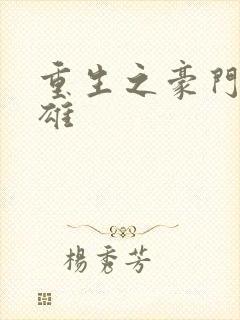 重生之豪門
雄
楊秀芳